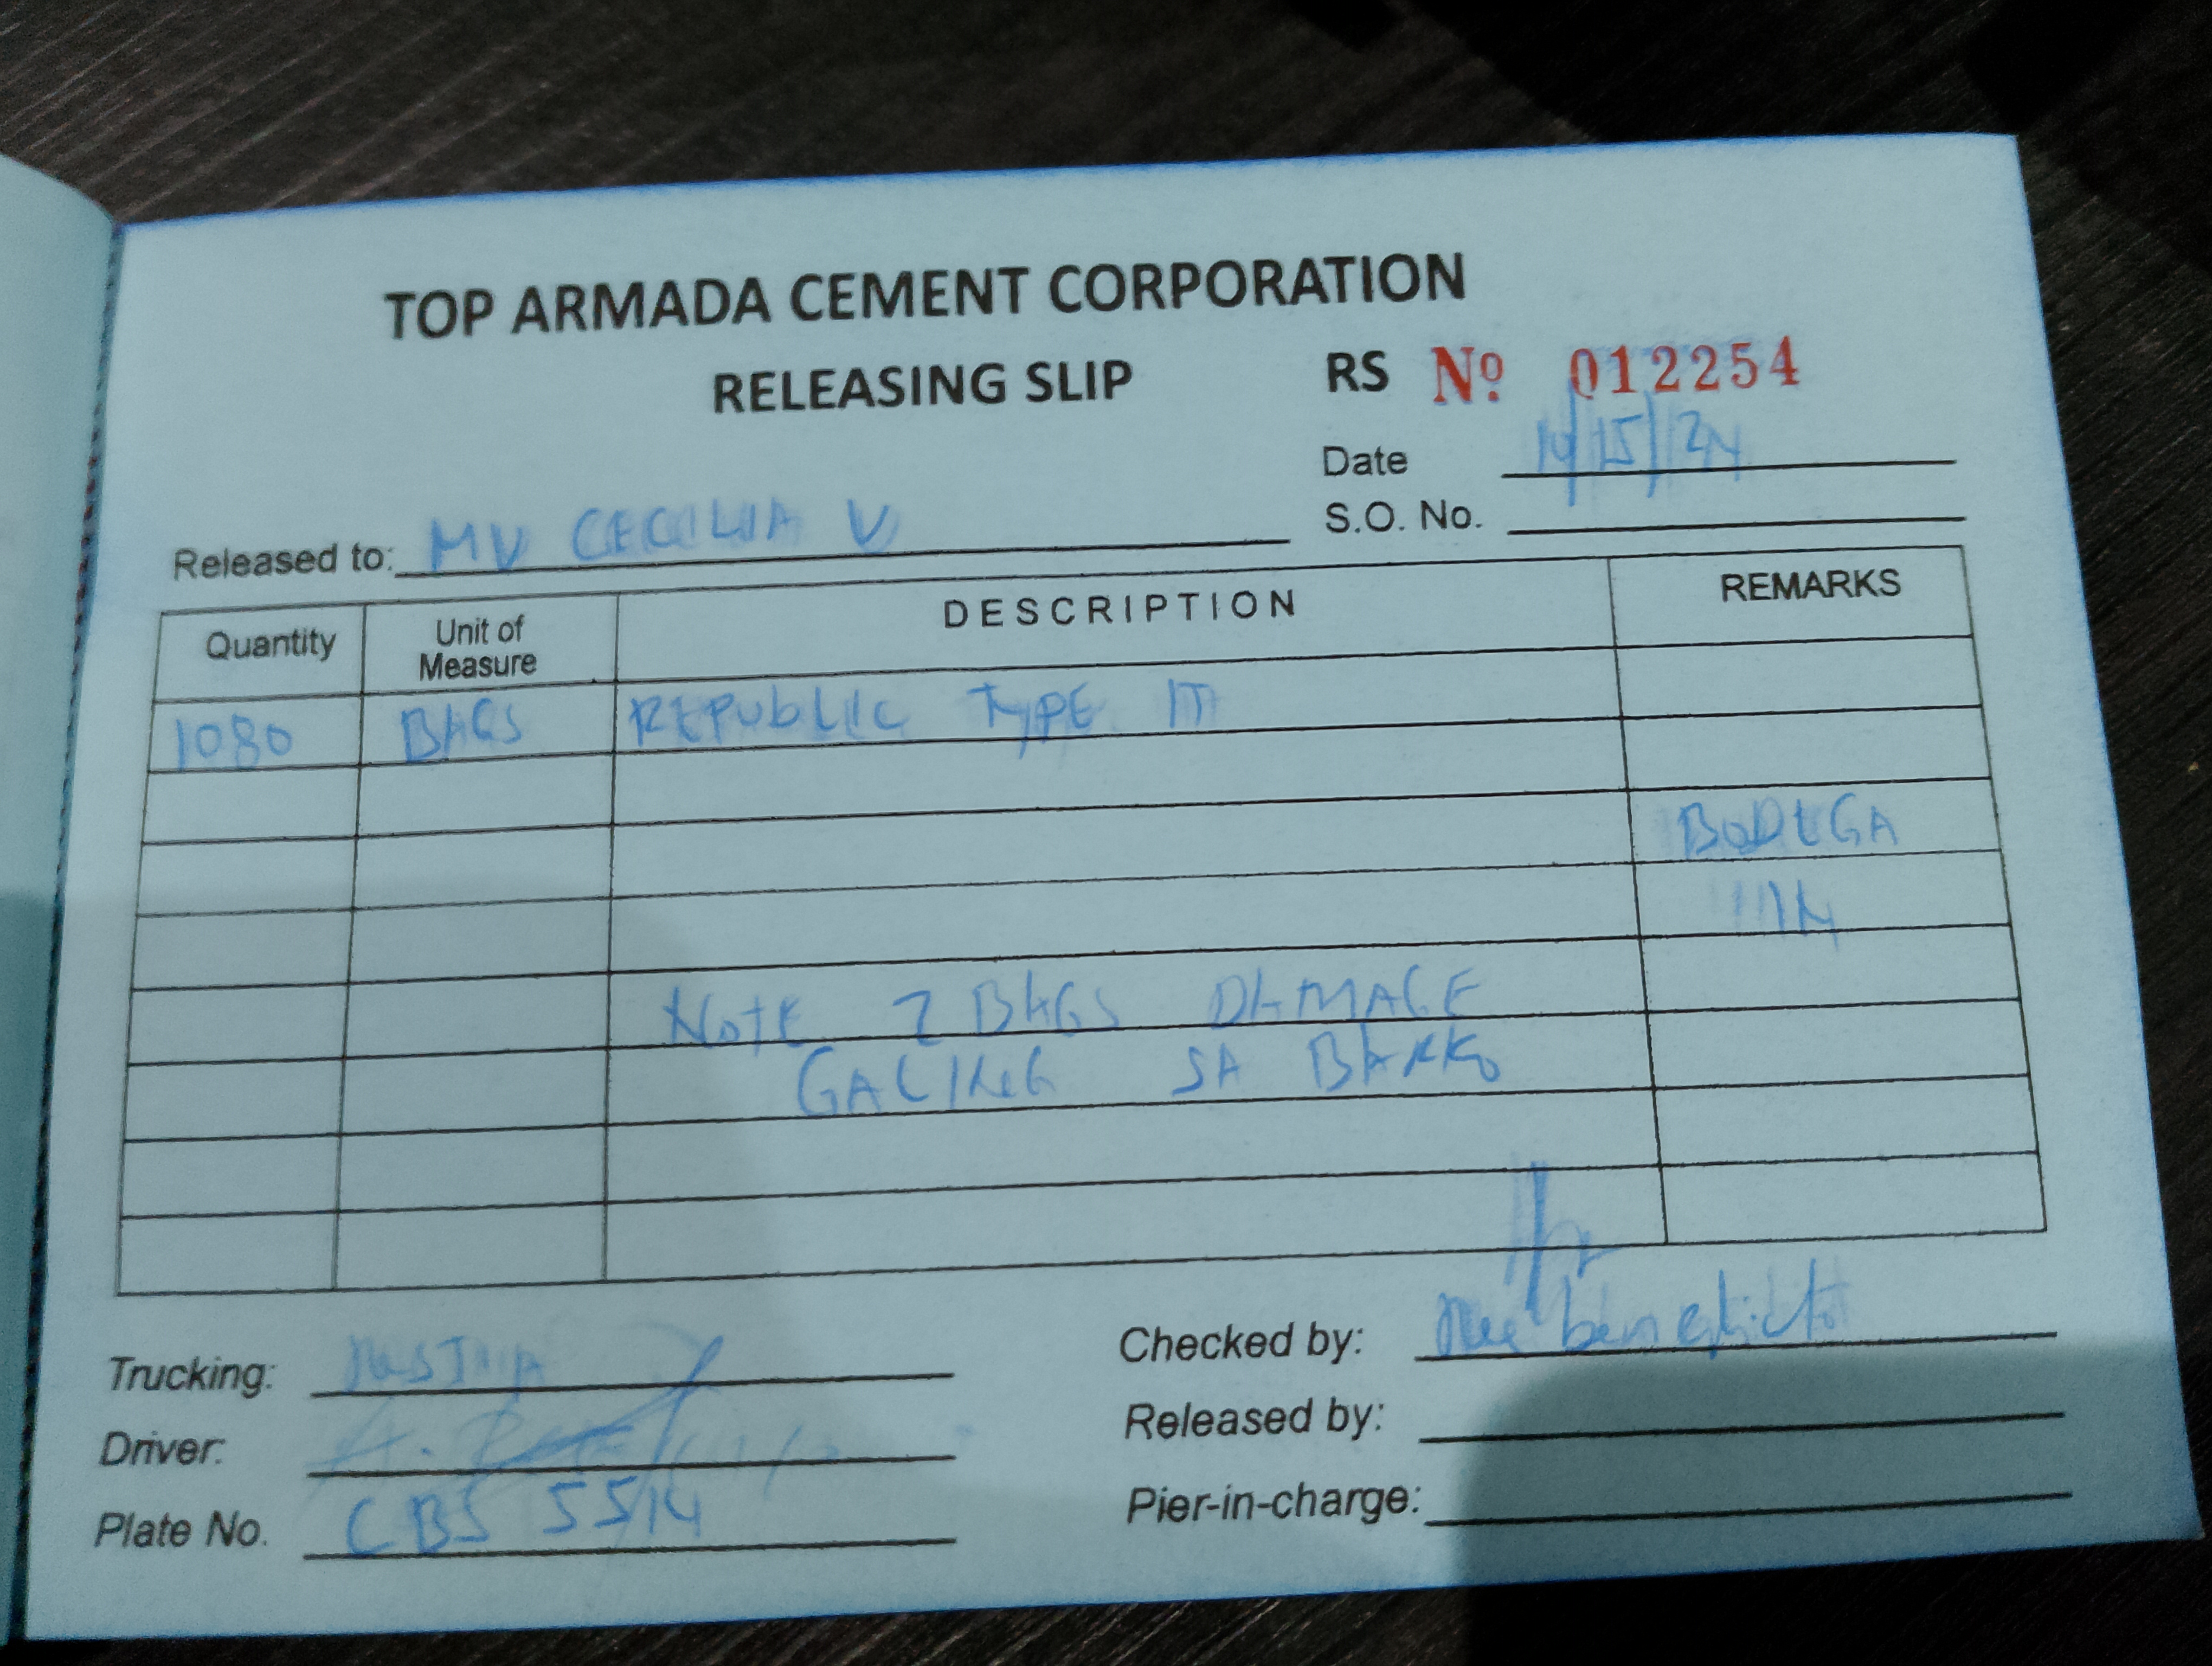 TOP ARMADA CEMENT CORPORATION
RELEASING SLIP RS Nº 012254
Date /15/24
S.O. No.
Released to: MV CECILIA V
Quantity Unit of Measure DESCRIPTION REMARKS
1080 BAGS REPUBLIC TYPE 1T
BODEGA
NOTE 2 BAGS DAMAGE
GALING SA BARKO
Trucking:
Checked by: benedicto
Driver:
Released by:
Plate No. CBS 5514
Pier-in-charge: